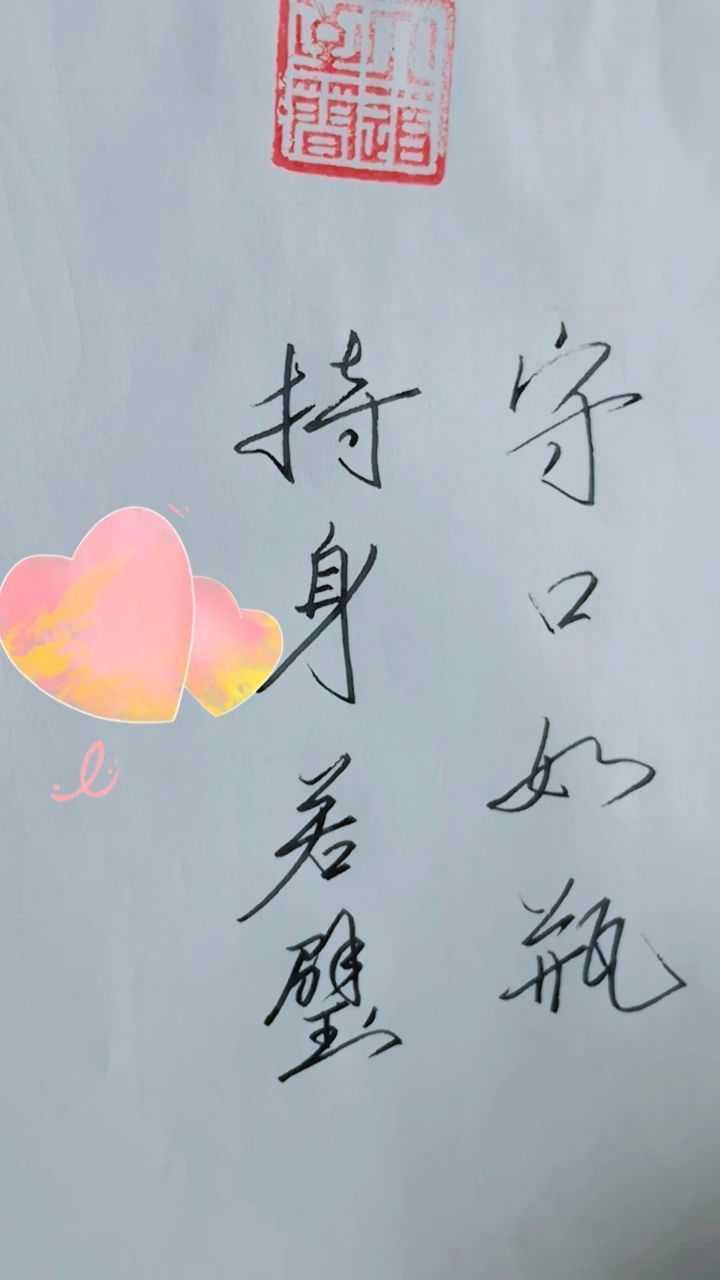 守口如瓶
持身若璧